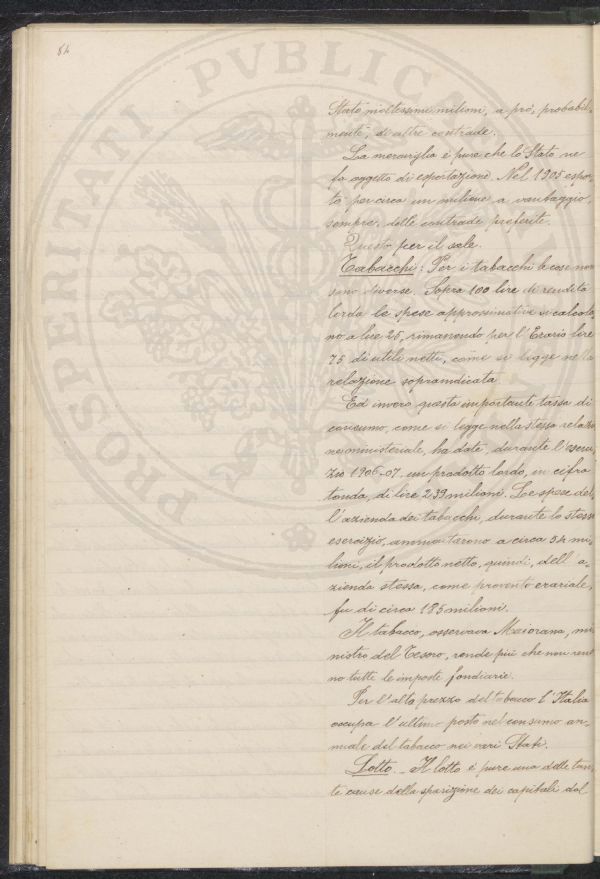 84
Stato moltissimi milioni, a prò, probabil-
mente, di altre contrade.
La meraviglia è pure che lo Stato ne
fa oggetto di esportazione. Nel 1905 espor-
tò per circa un milione a vantaggio,
sempre, delle contrade preferite.
Questo per il sale.
Tabacchi: Per i tabacchi le cose non
sono diverse. Sopra 100 lire di rendita
lorda le spese approssimative si calcola-
no a lire 25, rimanendo per l'Erario lire
75 di utili netti, come si legge nella
relazione sopraindicata.
Ed invero questa importante tassa di
consumo, come si legge nella stessa relazio-
ne ministeriale, ha dato, durante l'eserci-
zio 1906-07 un prodotto lordo, in cifra
tonda, di lire 239 milioni. Le spese del-
l'azienda dei tabacchi, durante lo stesso
esercizio, ammontarono a circa 54 mi-
lioni, il prodotto netto, quindi, dell'a-
zienda stessa, come provento erariale,
fu di circa 185 milioni.
Il tabacco, osservava Maiorana, mi-
nistro del Tesoro, rende più che non rendo-
no tutte le imposte fondiarie.
Per l'alto prezzo del tabacco l'Italia
occupa l'ultimo posto nel consumo an-
nuale del tabacco nei vari Stati.
Lotto. - Il lotto è pure una delle tan-
te cause della sparizione dei capitali dal
PROSPERITATI PVBLICAE